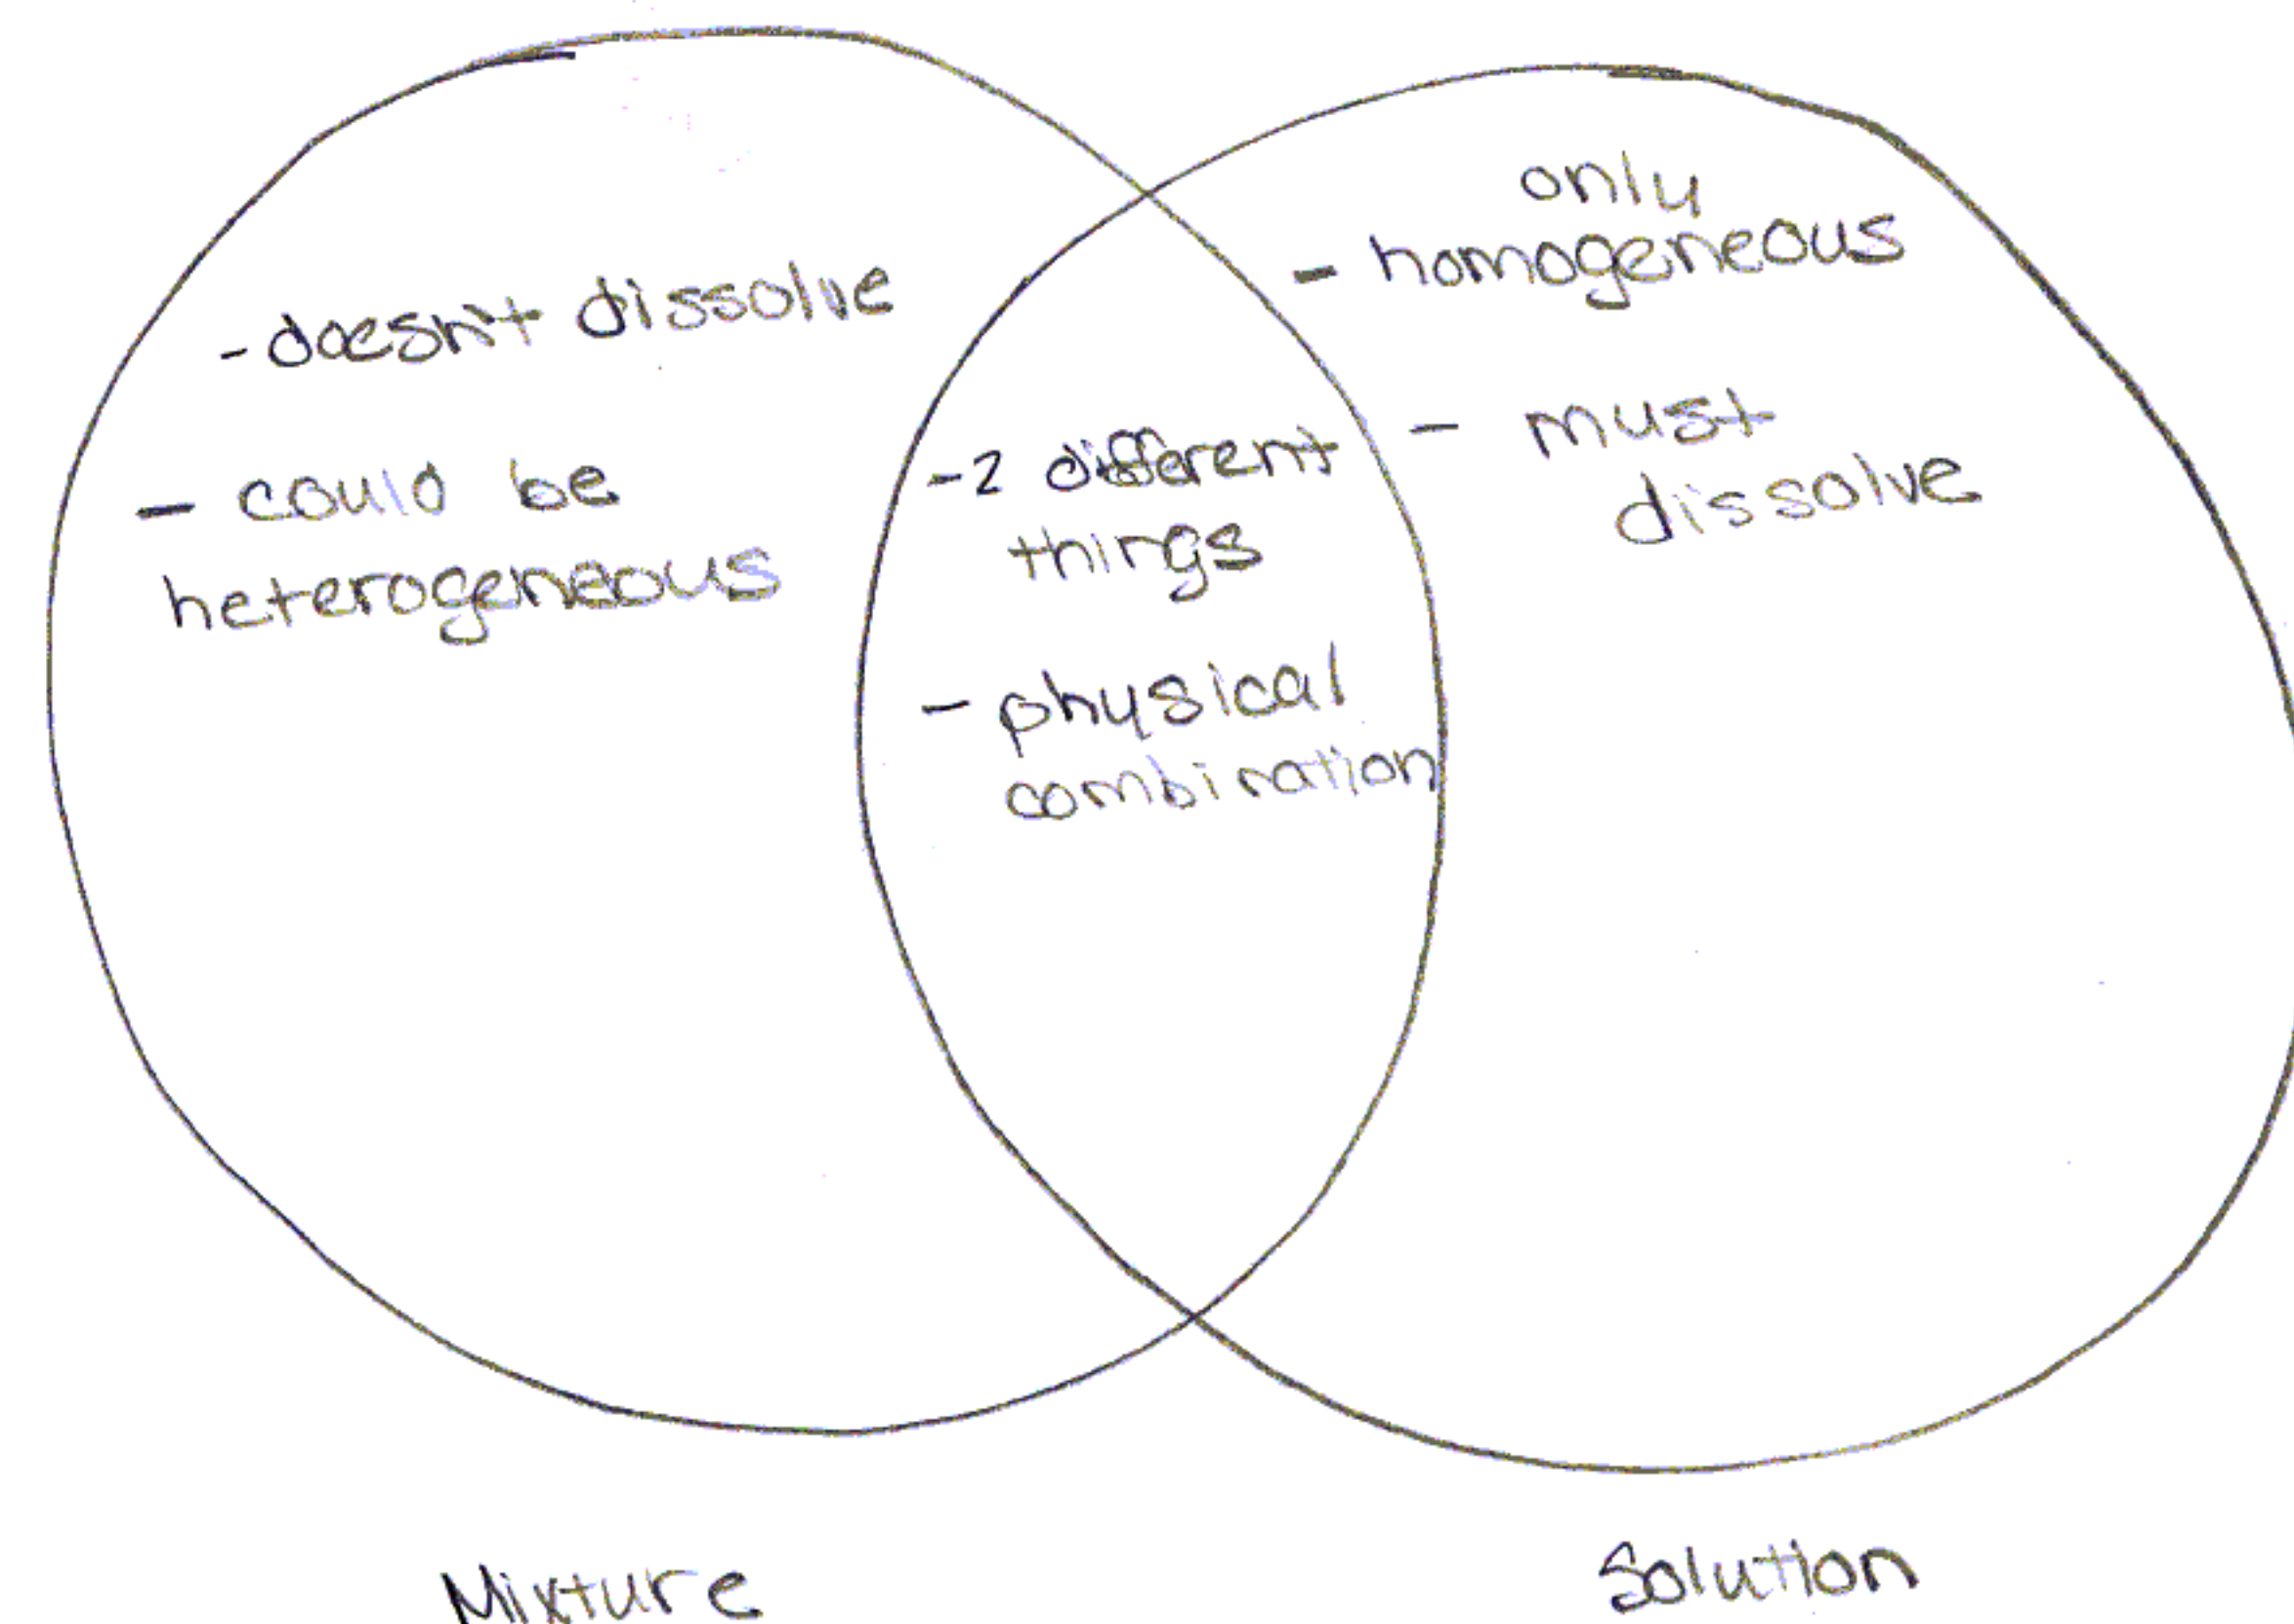 -doesn't dissolve
- could be
heterogeneous
-2 different
things
- physical
combination
only
- homogeneous
- must
dissolve
Mixture
Solution